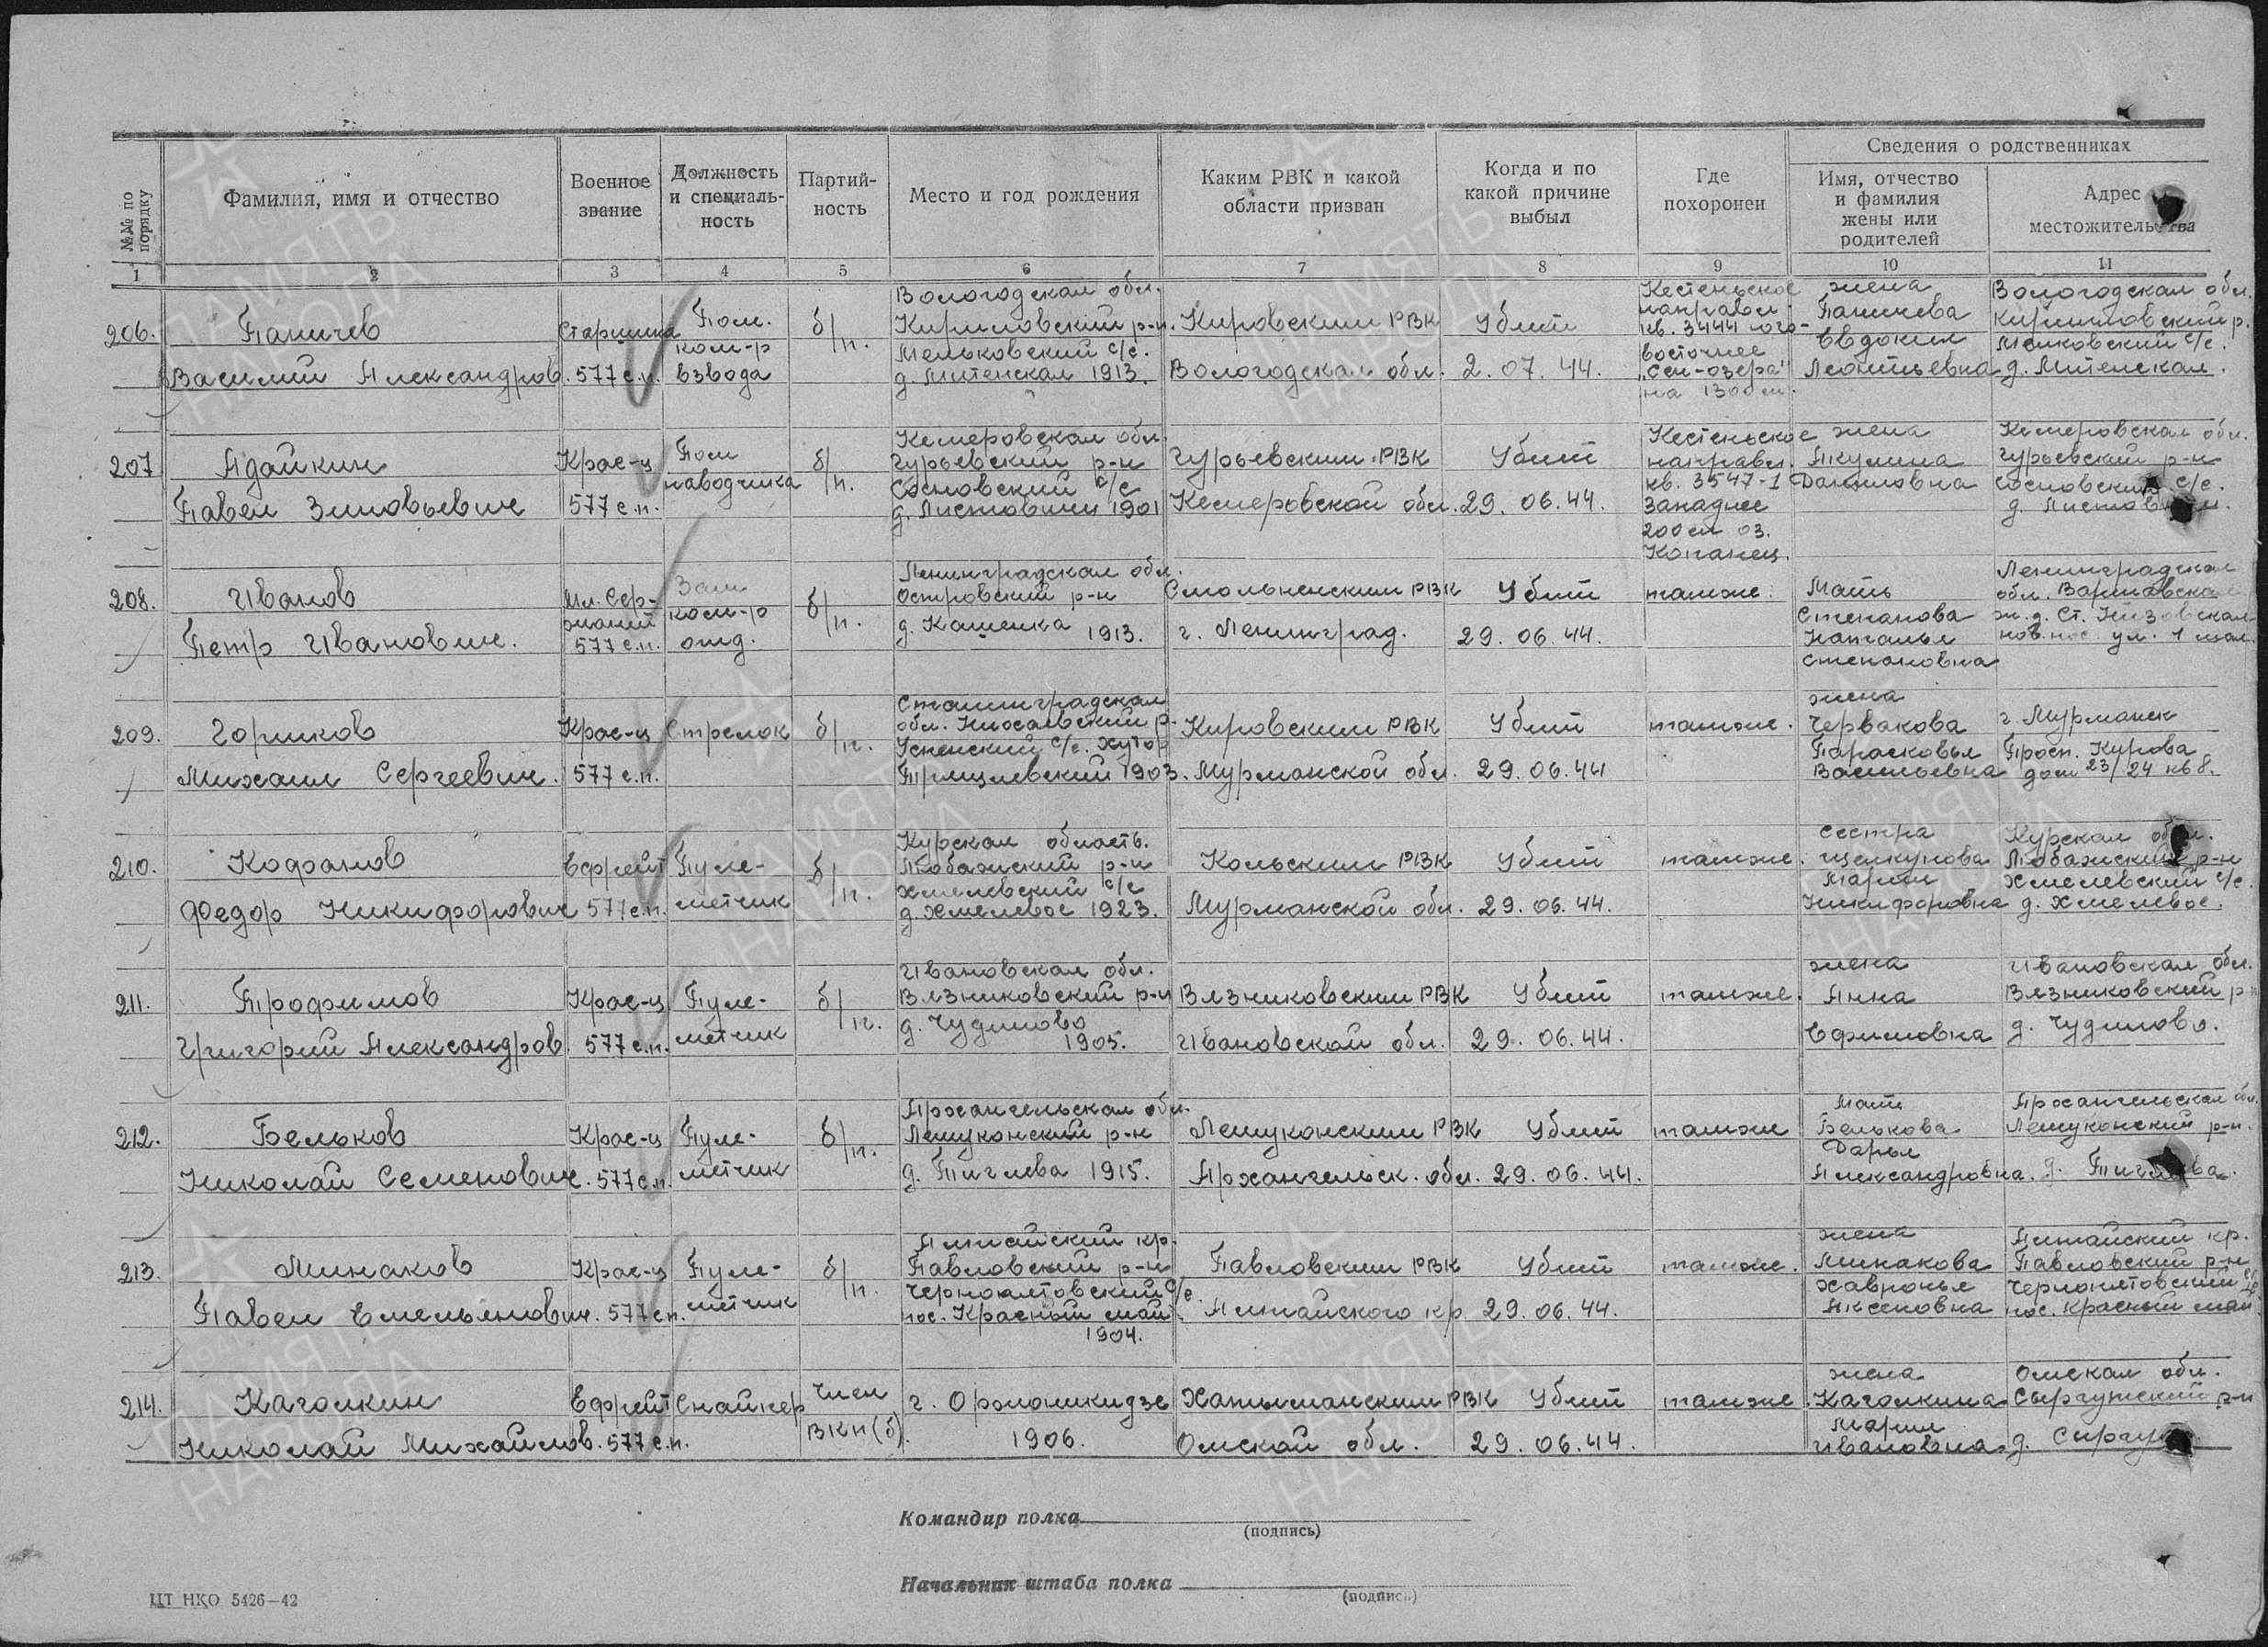 №№ по порядку
Фамилия, имя и отчество
Военное звание
Должность и специаль-ность
Партий-ность
Место и год рождения
Каким РВК и какой области призван
Когда и по какой причине выбыл
Где похоронен
Сведения о родственниках
Имя, отчество и фамилия жены или родителей
Адрес местожительства
1 2 3 4 5 6 7 8 9 10 11
206.
Паничев
Василий Александров.
Старшина
577 с.п.
Пом.
ком-р
взвода
б/п.
Вологодская обл.
Кирилловский р-н.
д. Митенская 1913.
Кировским РВК
Вологодская обл.
Убит
2.07.44.
Кестеньское
направл.
кв. 3444 юго-
восточнее
на 1300 м.
жена
Паничева
Евдокия
Леонтьевна
Вологодская обл.
Кирилловский р.
д. Митенская.
207
Адайкин
Павел Зиновьевич
Крас-ц
577 с.п.
Пом
наводчика
б/п.
Кемеровская обл.
Гурьевский р-н
Сосновский с/с
1901
Гурьевским РВК
Кемеровской обл.
Убит
29.06.44.
Кестеньское
направл.
кв. 3547-1
Западнее
200 м оз.
Копанец.
жена
Акулина
Даниловна
Кемеровская обл.
Гурьевский р-н
Сосновский с/с.
208.
Иванов
Петр Иванович.
Мл. Сер-
жант
577 с.п.
Зам
ком-р
отд.
б/п.
Ленинградская обл.
Островский р-н
д. Кашенка 1913.
Смольненским РВК
г. Ленинград.
Убит
29.06.44.
тамже.
Мать
Степанова
Наталья
Степановна
Ленинградская
обл.
ж.д. Ст. Низовская
209.
Горшков
Михаил Сергеевич.
Крас-ц
577 с.п.
Стрелок
б/п.
Сталинградская
обл.
Успенский с/с. хутор
1903.
Кировским РВК
Мурманской обл.
Убит
29.06.44
тамже.
жена
Червакова
Парасковья
Васильевна
г. Мурманск
Просп. Кирова
дом 23/24 кв 8.
210.
Кофанов
Федор Никифорович
Ефрейт
577 с.п.
Пуле-
метчик
б/п.
Курская область.
р-н
Хмелевский с/с
д. Хмелевое 1923.
Кольским РВК
Мурманской обл.
Убит
29.06.44.
тамже.
сестра
Щелкунова
Мария
Никифоровна
Курская обл.
р-н
Хмелевский с/с.
д. Хмелевое.
211.
Трофимов
Григорий Александров.
Крас-ц
577 с.п.
Пуле-
метчик
б/п.
Ивановская обл.
Вязниковский р-н
д. Чудиново
1905.
Вязниковским РВК
Ивановской обл.
Убит
29.06.44.
тамже.
жена
Анна
Ефимовна
Ивановская обл.
Вязниковский р-н
д. Чудиново.
212.
Бельков
Николай Семенович.
Крас-ц
577 с.п.
Пуле-
метчик
б/п.
Архангельская обл.
Лешуконский р-н
д. Пиглева 1915.
Лешуконским РВК
Архангельск. обл.
Убит
29.06.44.
тамже
мать
Белькова
Дарья
Александровна.
Архангельская обл.
Лешуконский р-н.
213.
Минаков
Павел Емельянович.
Крас-ц
577 с.п.
Пуле-
метчик
б/п.
Алтайский кр.
Павловский р-н
пос. Красный май
1904.
Павловским РВК
Алтайского кр
Убит
29.06.44.
тамже.
жена
Минакова
Хавронья
Аксеновна
Алтайский кр.
Павловский р-н
пос. Красный май
214.
Каголкин
Николай Михайлов.
Ефрейт
577 с.п.
Снайпер
Член
ВКП(б).
г. Орджоникидзе
1906.
РВК
Омской обл.
Убит
29.06.44.
тамже
жена
Каголкина
Мария
Ивановна.
Омская обл.
р-н
Командир полка
(подпись)
Начальник штаба полка
(подпись)
ЦТ НКО 5426—42
ПАМЯТЬ НАРОДА